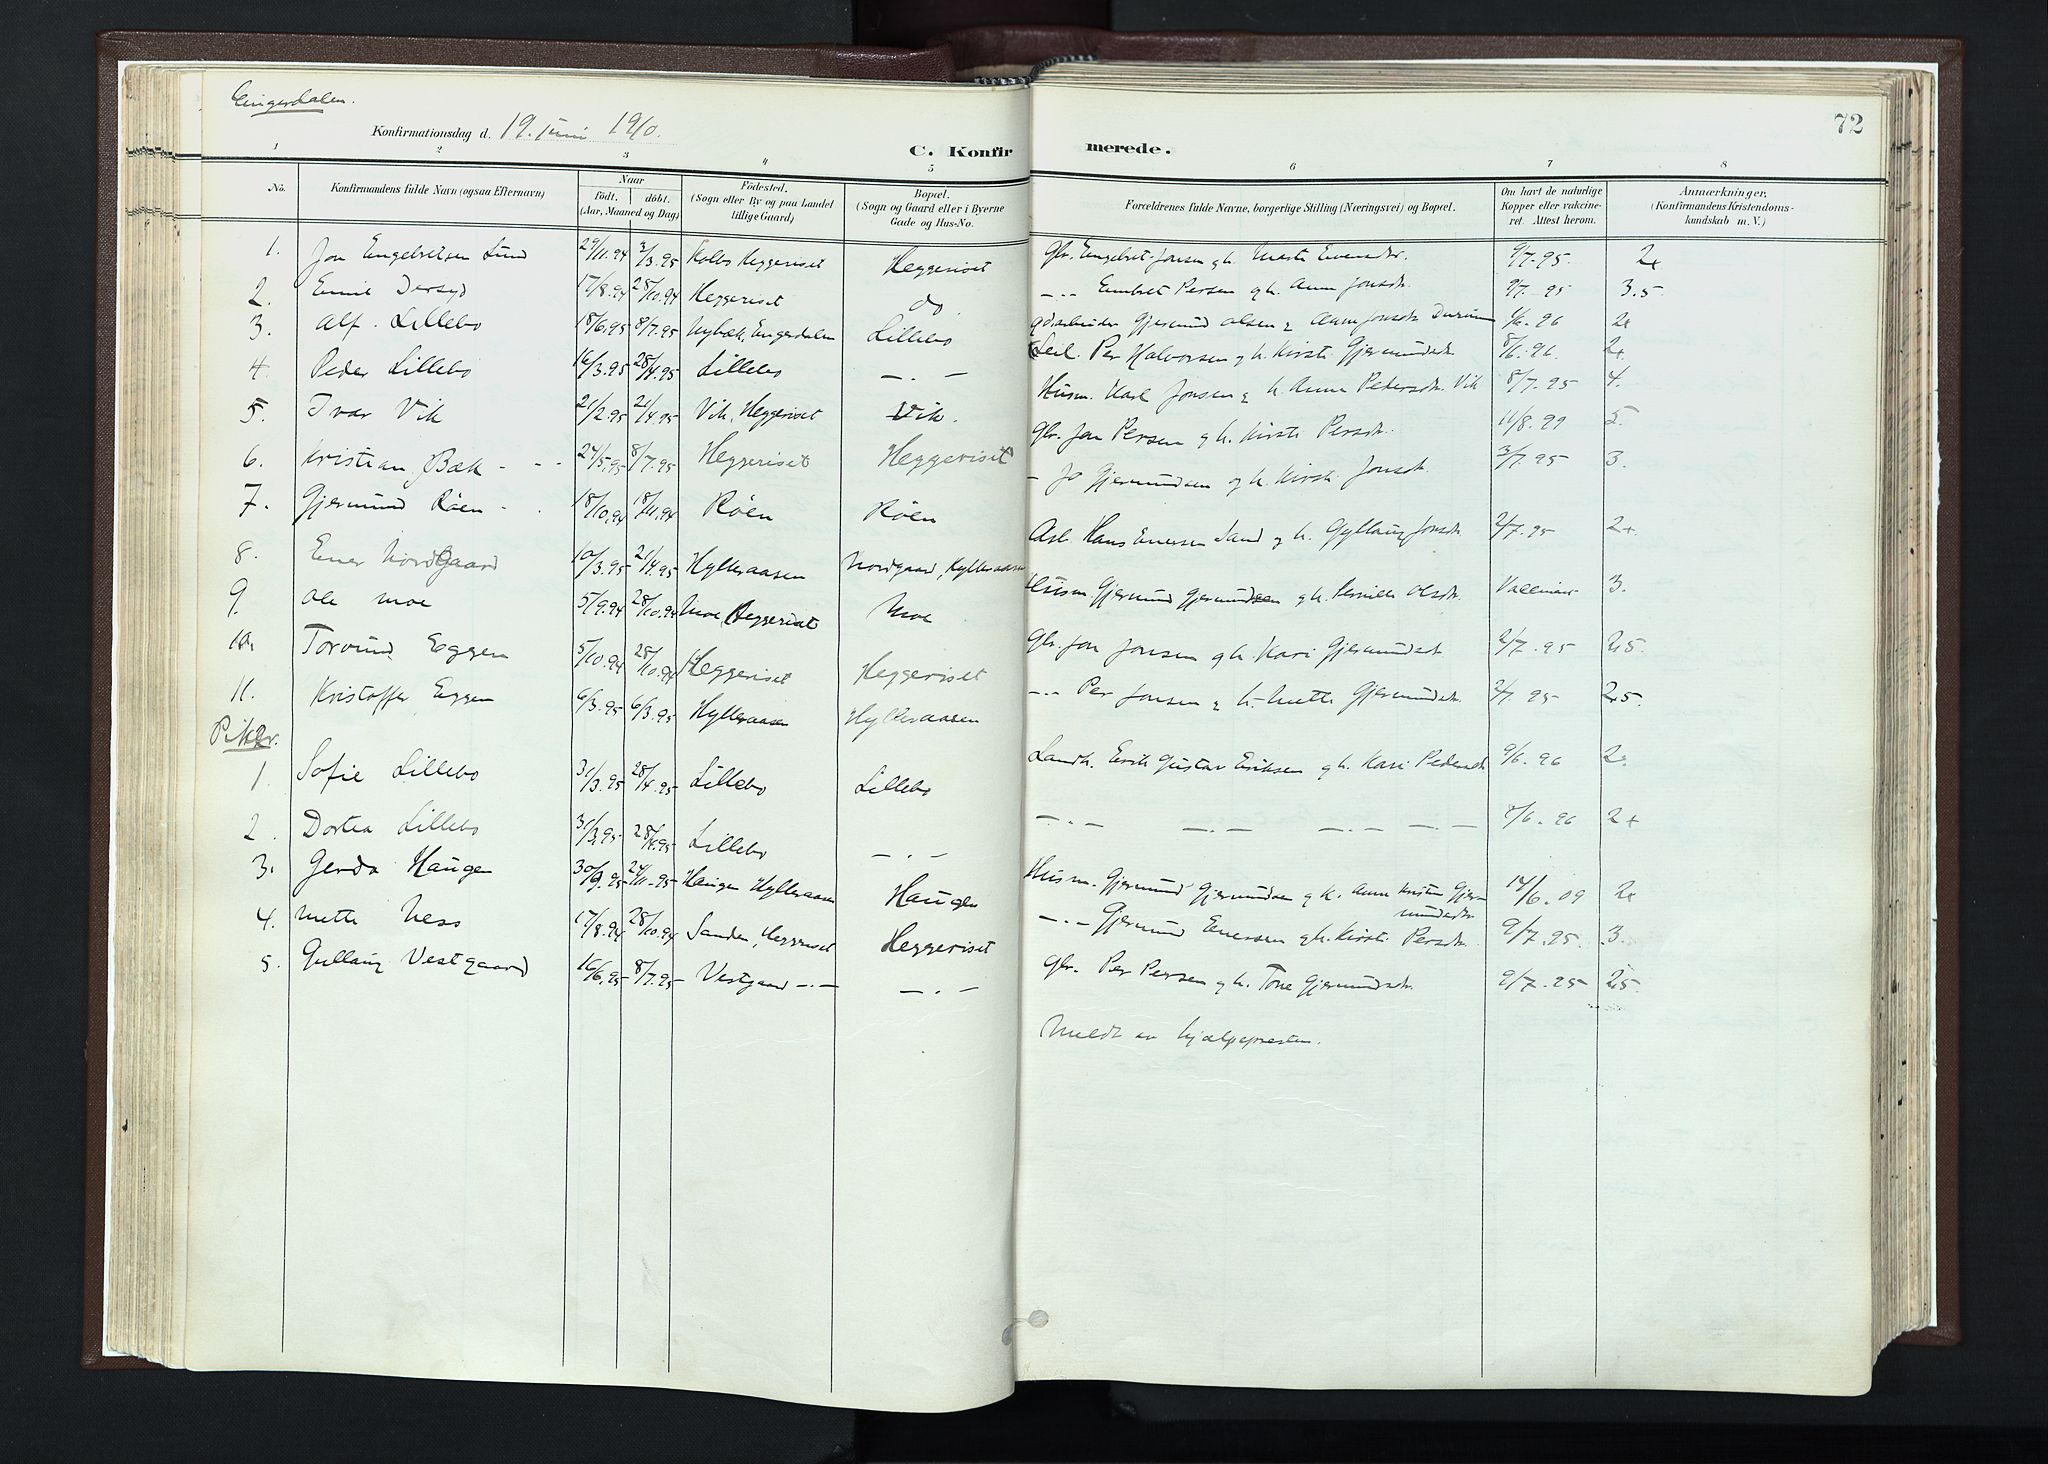 Engerdalen.
Konfirmationsdag d. 19. juni 1910.
C. Konfirmerede.
72
1 2 3 4 5 6 7 8
No. Konfirmandens fulde Navn (ogsaa Efternavn) Naar født. døbt. (Aar, Maaned og Dag) Fødested. (Sogn eller By og paa Landet tillige Gaard) Bopæl. (Sogn og Gaard eller i Byerne Gade og Hus-No. Forældrenes fulde Navne, borgerlige Stilling (Næringsvei) og Bopæl. Om havt de naturlige Kopper eller vakcineret. Attest herom. Anmærkninger. (Konfirmandens Kristendomskundskab m. V.)
1. Jon Engebretsen Lund 29/11.94 3/3.95 Heggeriset Heggeriset Gbr. Engebret Jonsen g h. Marte Evensdtr. 9/7.95. 2+
2. Emil Dersyd 17/8.94 28/10.94 Heggeriset do – · – Embret Persen g h. Anne Jonsdt. 9/7.95 3.5.
3. Alf Lillebo 18/6.95 8/7.95 Nybæk, Engerdalen Lillebo Gjermund Olsen & Anne Jonsdt 2+
4. Peder Lillebo 16/3.95 28/4.95 Lillebo – . – Per Halvorsen g h. Kirsti Gjermundsdt 8/6.96. 2+
5. Ivar Vik 21/2.95 21/4.95 Vik, Heggeriset Vik. Husm. Karl Jonsen & h. Anne Pedersdt. Vik 8/7.95 4.
6. Kristian Bæk - - - 24/5.95 8/7.95 Heggeriset Heggeriset Gbr. Jon Persen g h. Kirsti Persdt. 11/8.99 5.
7. Gjermund Røen - . 18/10.94 18/11.94 Røen Røen – Jo Gjermundsen og h. Kirsti Jonsdt. 3/7.95 3.
8. Ener Nordgaard 10/3.95 21/4.95 Hylleraasen Nordgaard, Hylleraasen Hans Enersen Sand g h. Gyllaug Jonsdt. 2/7.95 2+
9. Ole Moe 5/9.94 28/10.94 Moe Heggeriset Moe Husm. Gjermund Gjermundsen g h. Pernille Olsdt. 3.
10. Torvind Eggen 5/10.94 28/10.94 Heggeriset Heggeriset Gbr. Jon Jonsen g h. Kari Gjermundsdt 2/7.95 2.5.
11. Kristoffer Eggen 6/3.95 6/3.95 Hylleraasen Hylleraasen – · – Per Jonsen & h. Mette Gjermundsdt. 2/7.95 2.5.
Piker.
1. Sofie Lillebo 31/3.95 28/4.95 Lillebo Lillebo Landh. Erik Gustav Eriksen g h. Kari Pedersdt. 9/6.96 2+
2. Dortea Lillebo 31/3.95 28/4.95 Lillebo – . – – . – – . – – . – – – 8/6.96 2+
3. Gerda Haugen 30/9.95 24/11.95 Haugen Hylleraasen Haugen Husm. Gjermund Gjermundsen g h. Anne Kirstin Gjermundsdtr 14/6.09 2+
4. Mette Ness 17/8.94 28/10.94 Sanden, Heggeriset Heggeriset – . – Gjermund Enersen g h. Kirsti Persdt. 9/7.95. 3.
5. Gullaug Vestgaard 16/6.95 8/7.95 Vestgaard – . – – . – Gbr. Per Persen g h. Tone Gjermundsdtr. 9/7.95 2.5.
Meldt av hjælpepresten.